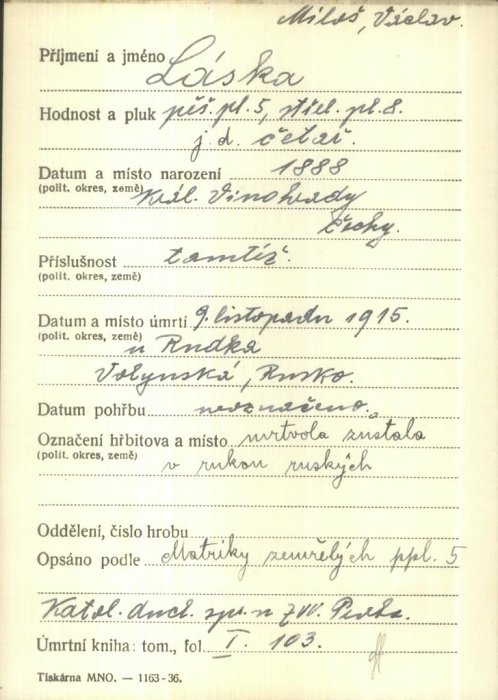 Miloš, Václav.
Příjmení a jméno Láska
Hodnost a pluk pěš. pl. 5, střel. pl. 8.
j. d. četař.
Datum a místo narození 1888
(polit. okres, země) Král. Vinohrady
Čechy.
Příslušnost tamtéž.
(polit. okres, země)
Datum a místo úmrtí 9. listopadu 1915.
(polit. okres, země) u Rudka
Volynská, Rusko.
Datum pohřbu neoznačeno.
Označení hřbitova a místo mrtvola zustala
(polit. okres, země) v rukou ruských
Oddělení, číslo hrobu
Opsáno podle Matriky zemřelých ppl. 5
Katol. duch. spr. u ZVV. Praha.
Úmrtní kniha: tom., fol. I. 103.
Tiskárna MNO. — 1163-36.